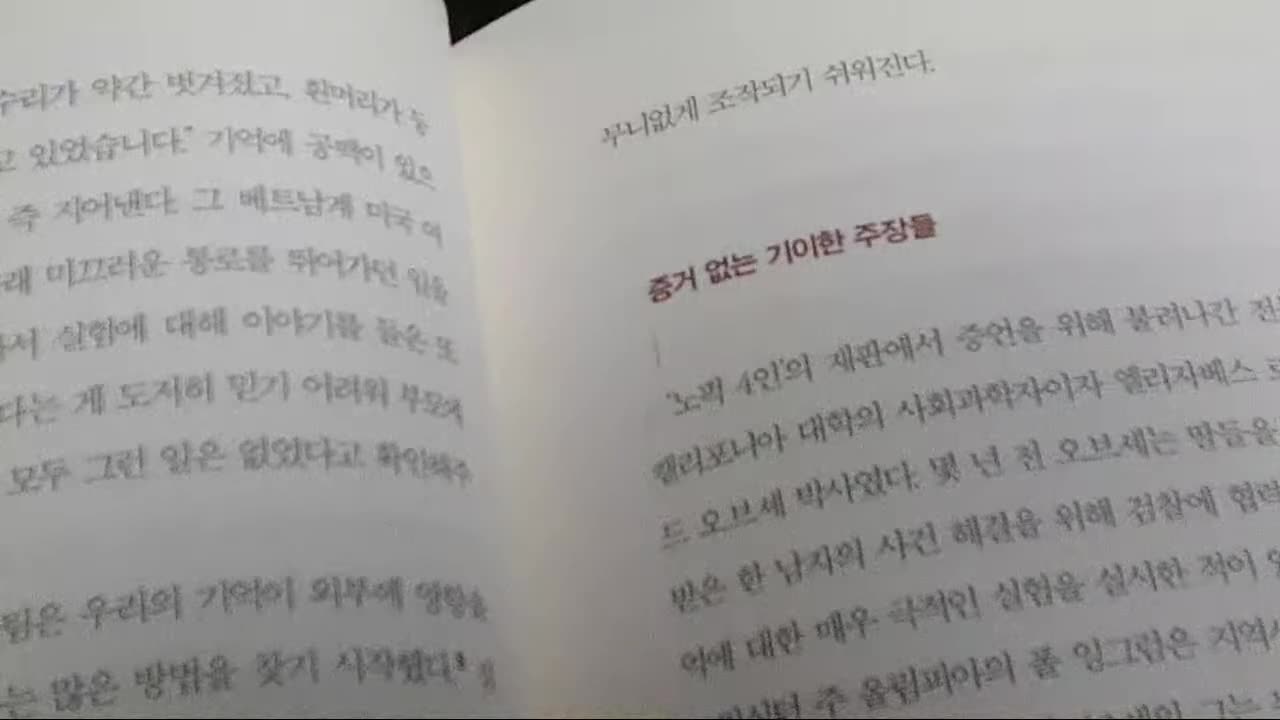 수리가 약간 벗겨졌고, 흰머리가 듬
고 있었습니다." 기억에 공백이 있으
즉 지어낸다. 그 베트남계 미국 여
래 미끄러운 통로를 뛰어가던 일을
서 실험에 대해 이야기를 들은 또
다는 게 도저히 믿기 어려워 부모께
모두 그런 일은 없었다고 확인해주
림은 우리의 기억이 외부에 영향을
는 많은 방법을 찾기 시작했다.
무니없게 조작되기 쉬워진다.
증거 없는 기이한 주장들
'노퍽 4인'의 재판에서 증언을 위해 불려나간 전
캘리포니아 대학의 사회과학자이자 엘리자베스 로
드 오브셰 박사였다. 몇 년 전 오브셰는 딸들을
받은 한 남자의 사건 해결을 위해 검찰에 협력
억에 대한 매우 극적인 실험을 실시한 적이
워싱턴 주 올림피아의 폴 잉그럼은 지역
그는